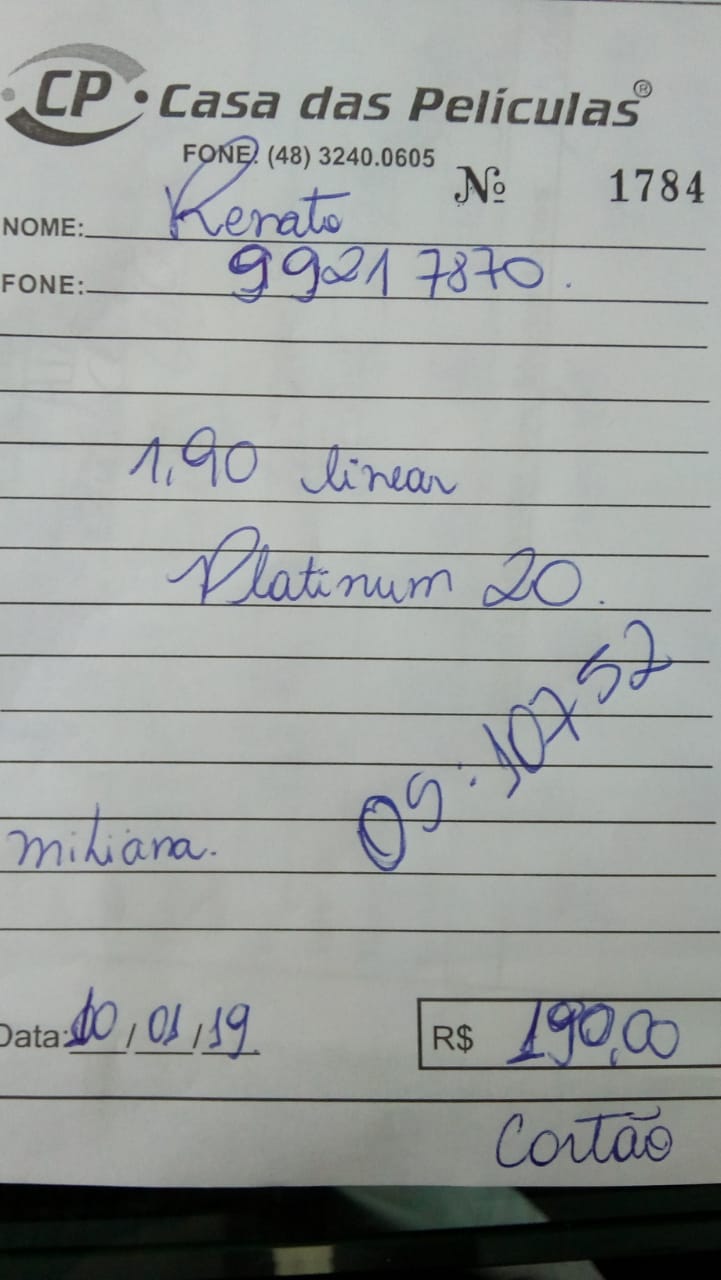 CP • Casa das Películas®
FONE: (48) 3240.0605
Nº 1784
NOME: Renato
FONE: 99217870.
1,90 linear
Platinum 20.
09:10752
Data: 10/01/19
R$ 190,00
Cartão